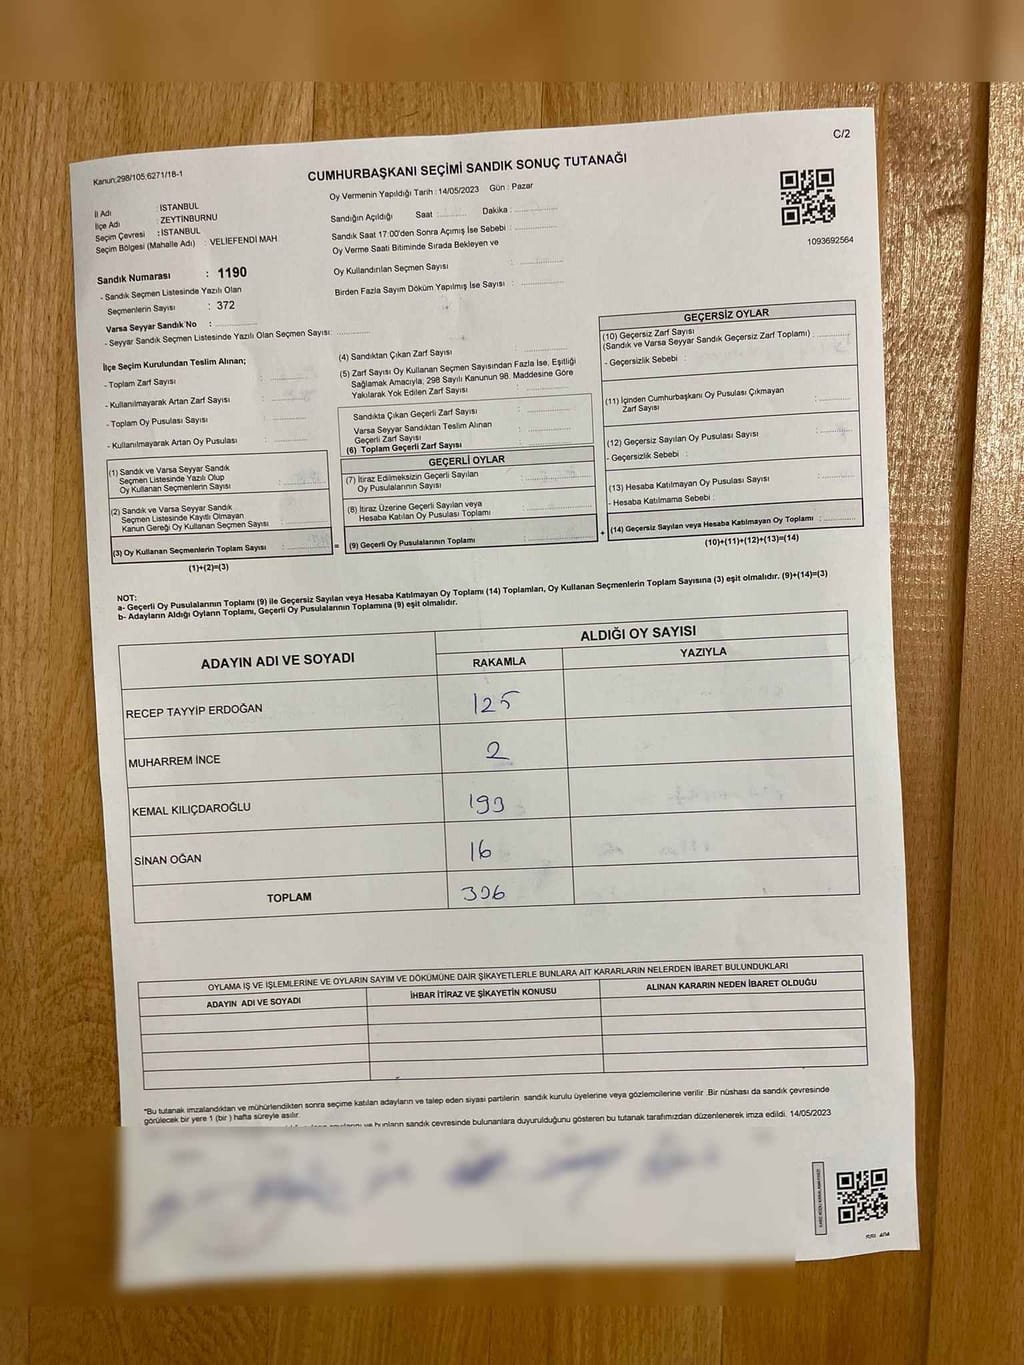 C/2
Kanun:298/105.6271/18-1
CUMHURBAŞKANI SEÇİMİ SANDIK SONUÇ TUTANAĞI
İl Adı : İSTANBUL
İlçe Adı : ZEYTİNBURNU
Seçim Çevresi : İSTANBUL
Seçim Bölgesi (Mahalle Adı) : VELİEFENDİ MAH
Sandık Numarası : 1190
- Sandık Seçmen Listesinde Yazılı Olan
Seçmenlerin Sayısı : 372
Varsa Seyyar Sandık No :
- Seyyar Sandık Seçmen Listesinde Yazılı Olan Seçmen Sayısı:
Oy Vermenin Yapıldığı Tarih : 14/05/2023 Gün : Pazar
Sandığın Açıldığı Saat : Dakika :
Sandık Saat 17:00'den Sonra Açımış İse Sebebi :
Oy Verme Saati Bitiminde Sırada Bekleyen ve
Oy Kullandırılan Seçmen Sayısı :
Birden Fazla Sayım Döküm Yapılmış İse Sayısı :
1093692564
İlçe Seçim Kurulundan Teslim Alınan;
- Toplam Zarf Sayısı :
- Kullanılmayarak Artan Zarf Sayısı :
- Toplam Oy Pusulası Sayısı :
- Kullanılmayarak Artan Oy Pusulası :
(1) Sandık ve Varsa Seyyar Sandık
Seçmen Listesinde Yazılı Olup
Oy Kullanan Seçmenlerin Sayısı :
(2) Sandık ve Varsa Seyyar Sandık
Seçmen Listesinde Kayıtlı Olmayan
Kanun Gereği Oy Kullanan Seçmen Sayısı :
(3) Oy Kullanan Seçmenlerin Toplam Sayısı :
(1)+(2)=(3)
(4) Sandıktan Çıkan Zarf Sayısı :
(5) Zarf Sayısı Oy Kullanan Seçmen Sayısından Fazla İse, Eşitliği
Sağlamak Amacıyla, 298 Sayılı Kanunun 98. Maddesine Göre
Yakılarak Yok Edilen Zarf Sayısı :
Sandıkta Çıkan Geçerli Zarf Sayısı :
Varsa Seyyar Sandıktan Teslim Alınan
Geçerli Zarf Sayısı :
(6) Toplam Geçerli Zarf Sayısı :
GEÇERLİ OYLAR
(7) İtiraz Edilmeksizin Geçerli Sayılan
Oy Pusulalarının Sayısı :
(8) İtiraz Üzerine Geçerli Sayılan veya
Hesaba Katılan Oy Pusulası Toplamı :
= (9) Geçerli Oy Pusulalarının Toplamı : +
GEÇERSİZ OYLAR
(10) Geçersiz Zarf Sayısı
(Sandık ve Varsa Seyyar Sandık Geçersiz Zarf Toplamı) :
- Geçersizlik Sebebi :
(11) İçinden Cumhurbaşkanı Oy Pusulası Çıkmayan
Zarf Sayısı :
(12) Geçersiz Sayılan Oy Pusulası Sayısı :
- Geçersizlik Sebebi :
(13) Hesaba Katılmayan Oy Pusulası Sayısı :
- Hesaba Katılmama Sebebi :
(14) Geçersiz Sayılan veya Hesaba Katılmayan Oy Toplamı :
(10)+(11)+(12)+(13)=(14)
NOT:
a- Geçerli Oy Pusulalarının Toplamı (9) ile Geçersiz Sayılan veya Hesaba Katılmayan Oy Toplamı (14) Toplamları, Oy Kullanan Seçmenlerin Toplam Sayısına (3) eşit olmalıdır. (9)+(14)=(3)
b- Adayların Aldığı Oyların Toplamı, Geçerli Oy Pusulalarının Toplamına (9) eşit olmalıdır.
ADAYIN ADI VE SOYADI
ALDIĞI OY SAYISI
RAKAMLA YAZIYLA
RECEP TAYYİP ERDOĞAN 125
MUHARREM İNCE 2
KEMAL KILIÇDAROĞLU 193
SİNAN OĞAN 16
TOPLAM 336
OYLAMA İŞ VE İŞLEMLERİNE VE OYLARIN SAYIM VE DÖKÜMÜNE DAİR ŞİKAYETLERLE BUNLARA AİT KARARLARIN NELERDEN İBARET BULUNDUKLARI
ADAYIN ADI VE SOYADI İHBAR İTİRAZ VE ŞİKAYETİN KONUSU ALINAN KARARIN NEDEN İBARET OLDUĞU
*Bu tutanak imzalandıktan ve mühürlendikten sonra seçime katılan adayların ve talep eden siyasi partilerin sandık kurulu üyelerine veya gözlemcilerine verilir .Bir nüshası da sandık çevresinde
görülecek bir yere 1 (bir ) hafta süreyle asılır.
ve bunların sandık çevresinde bulunanlara duyurulduğunu gösteren bu tutanak tarafımızdan düzenlenerek imza edildi. 14/05/2023